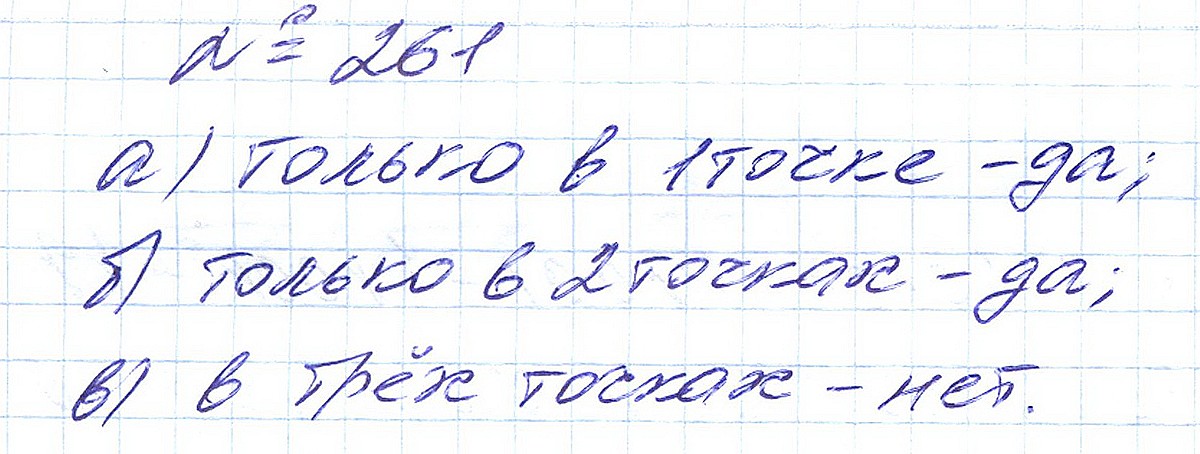 № 261
а) только в 1 точке - да;
б) только в 2 точках - да;
в) в трёх точках - нет.